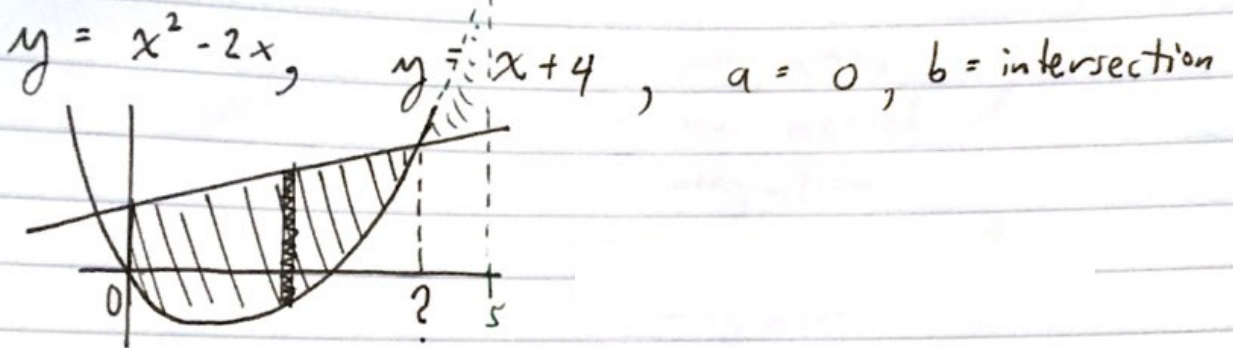 y = x² - 2x, y = x + 4, a = 0, b = intersection
0 ? 5